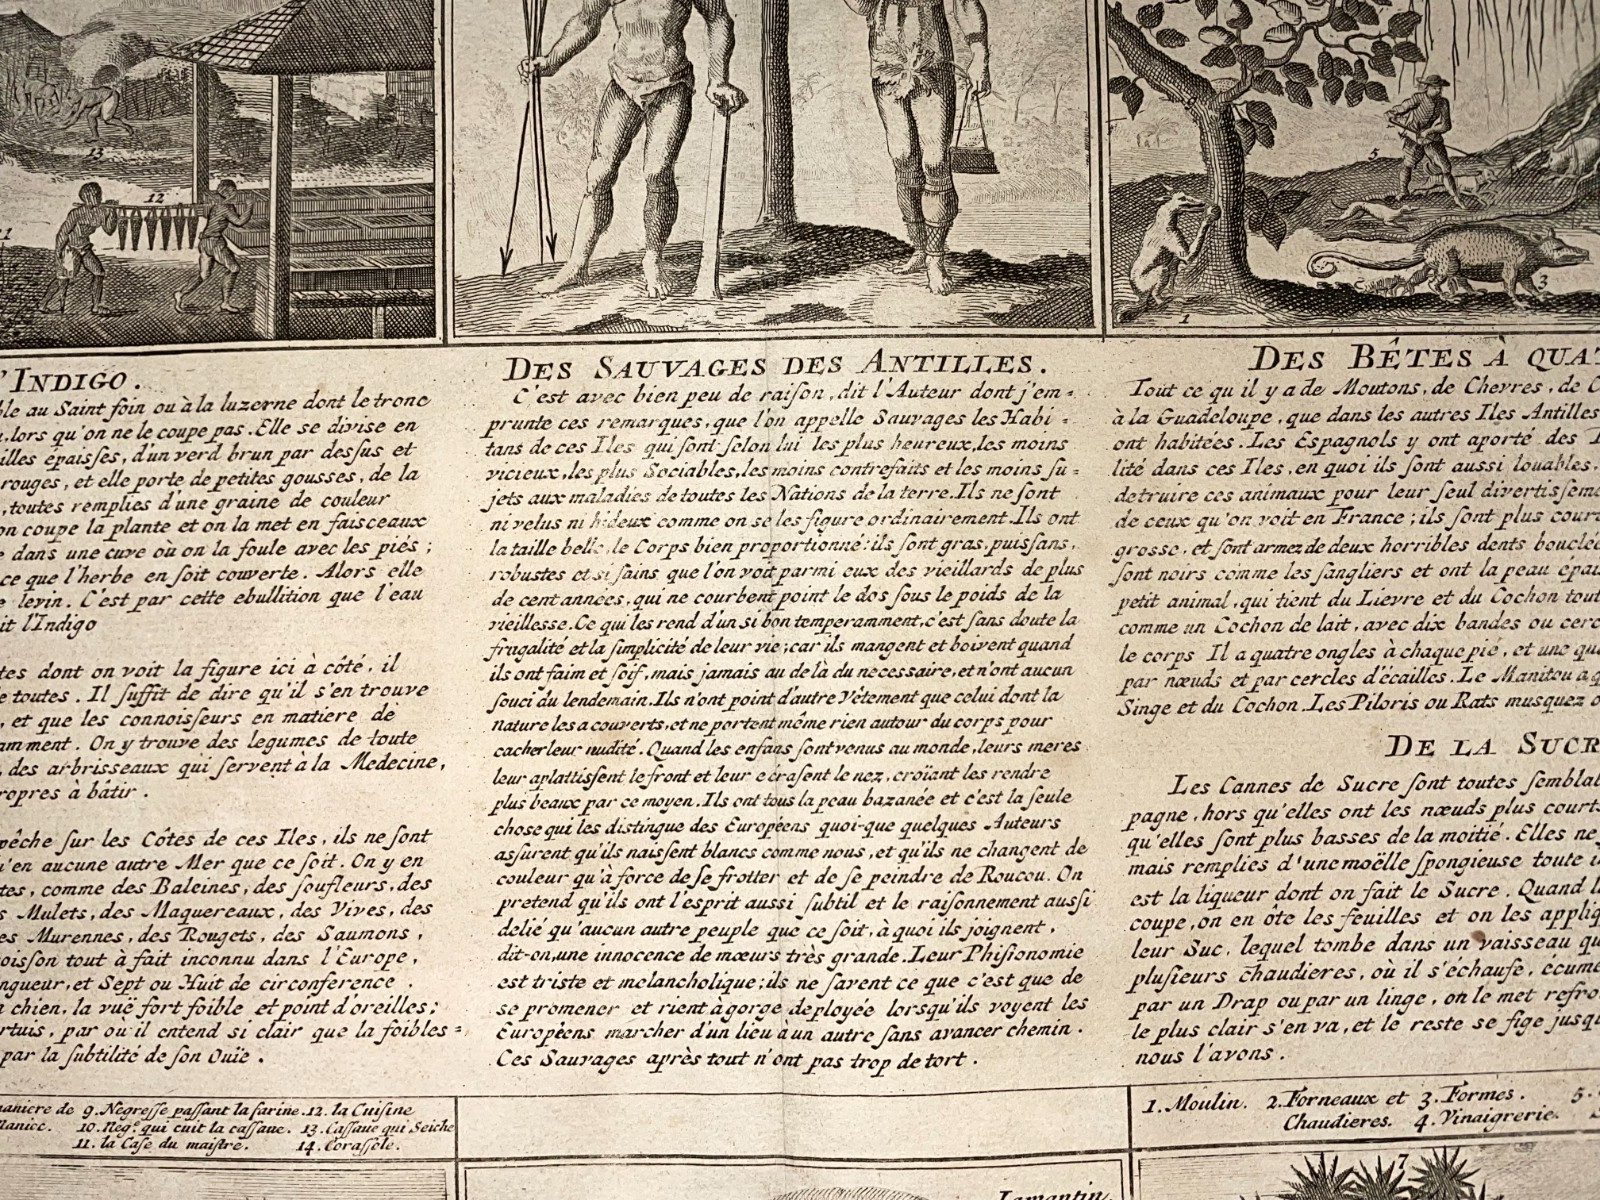 13
12
11
5
3
1
'INDIGO.
ble au Saint foin ou à la luzerne dont le tronc
, lors qu'on ne le coupe pas. Elle se divise en
illes épaisses, d'un verd brun par dessus et
rouges, et elle porte de petites gousses, de la
, toutes remplies d'une graine de couleur
on coupe la plante et on la met en faisceaux
e dans une cuve où on la foule avec les piés ;
ce que l'herbe en soit couverte. Alors elle
e levin. C'est par cette ebullition que l'eau
it l'Indigo
tes dont on voit la figure ici à côté, il
e toutes. Il suffit de dire qu'il s'en trouve
, et que les connoisseurs en matiere de
amment. On y trouve des legumes de toute
, des arbrisseaux qui servent à la Medecine,
ropres à bâtir.
pêche sur les Côtes de ces Iles, ils ne sont
u'en aucune autre Mer que ce soit. On y en
tes, comme des Baleines, des soufleurs, des
s Mulets, des Maquereaux, des Vives, des
es Murennes, des Rougets, des Saumons,
oisson tout à fait inconnu dans l'Europe,
ngueur, et Sept ou Huit de circonference.
n chien, la vuë fort foible et point d'oreilles;
rtuis, par ou il entend si clair que la foibles=
par la subtilité de son Ouïe.
DES SAUVAGES DES ANTILLES.
C'est avec bien peu de raison, dit l'Auteur dont j'em=
prunte ces remarques, que l'on appelle Sauvages les Habi=
tans de ces Iles qui sont selon lui les plus heureux, les moins
vicieux, les plus Sociables, les moins contrefaits et les moins su=
jets aux maladies de toutes les Nations de la terre. Ils ne sont
ni velus ni hideux comme on se les figure ordinairement. Ils ont
la taille belle, le Corps bien proportionné: ils sont gras, puissans,
robustes et si sains, que l'on voit parmi eux des vieillards de plus
de cent années, qui ne courbent point le dos sous le poids de la
vieillesse. Ce qui les rend d'un si bon temperamment, c'est sans doute la
frugalité et la simplicité de leur vie; car ils mangent et boivent quand
ils ont faim et soif, mais jamais au de là du necessaire, et n'ont aucun
souci du lendemain. Ils n'ont point d'autre Vêtement que celui dont la
Nature les a couverts, et ne portent même rien autour du corps pour
cacher leur nudité. Quand les enfans sont venus au monde, leurs meres
leur aplattissent le front et leur ecrasent le nez, croïant les rendre
plus beaux par ce moyen. Ils ont tous la peau bazanée et c'est la seule
chose qui les distingue des Européens quoi-que quelques Auteurs
assurent qu'ils naissent blancs comme nous, et qu'ils ne changent de
couleur qu'à force de se frotter et de se peindre de Roucou. On
pretend qu'ils ont l'esprit aussi subtil et le raisonnement aussi
delié qu'aucun autre peuple que ce soit, à quoi ils joignent,
dit-on, une innocence de mœurs très grande. Leur Phisionomie
est triste et melancholique; ils ne savent ce que c'est que de
se promener et rient à gorge deployée lorsqu'ils voyent les
Européens marcher d'un lieu à un autre sans avancer chemin.
Ces Sauvages après tout n'ont pas trop de tort.
DES BÊTES À QUAT
Tout ce qu'il y a de Moutons, de Chevres, de C
à la Guadeloupe, que dans les autres Iles Antilles
ont habitées. Les Espagnols y ont aporté des
lité dans ces Iles, en quoi ils sont aussi louables,
detruire ces animaux pour leur seul divertisseme
de ceux qu'on voit en France; ils sont plus cour
grosse, et sont armez de deux horribles dents bouclée
sont noirs comme les sangliers et ont la peau epai
petit animal, qui tient du Lievre et du Cochon tout
comme un Cochon de lait, avec dix bandes ou cerc
le corps Il a quatre ongles à chaque pié, et une qu
par nœuds et par cercles d'écailles. Le Manitou a q
Singe et du Cochon. Les Piloris ou Rats musquez o
DE LA SUCR
Les Cannes de Sucre sont toutes semblal
pagne, hors qu'elles ont les nœuds plus courts
qu'elles sont plus basses de la moitié. Elles ne
mais remplies d'une moëlle spongieuse toute
est la liqueur dont on fait le Sucre. Quand l
coupe, on en ôte les feuilles et on les appliq
leur Suc, lequel tombe dans un vaisseau qu
plusieurs chaudieres, où il s'échaufe, écume
par un Drap ou par un linge, on le met refro
le plus clair s'en va, et le reste se fige jusqu
nous l'avons.
maniere de 9. Negresse passant la farine. 12. la Cuisine
Manioc. 10. Neg.e qui cuit la cassaue. 13. Cassaue qui Seiche
11. la Case du maistre. 14. Corassole.
1. Moulin. 2. Forneaux et 3. Formes. 5.
Chaudieres. 4. Vinaigrerie.
Lamantin.
7